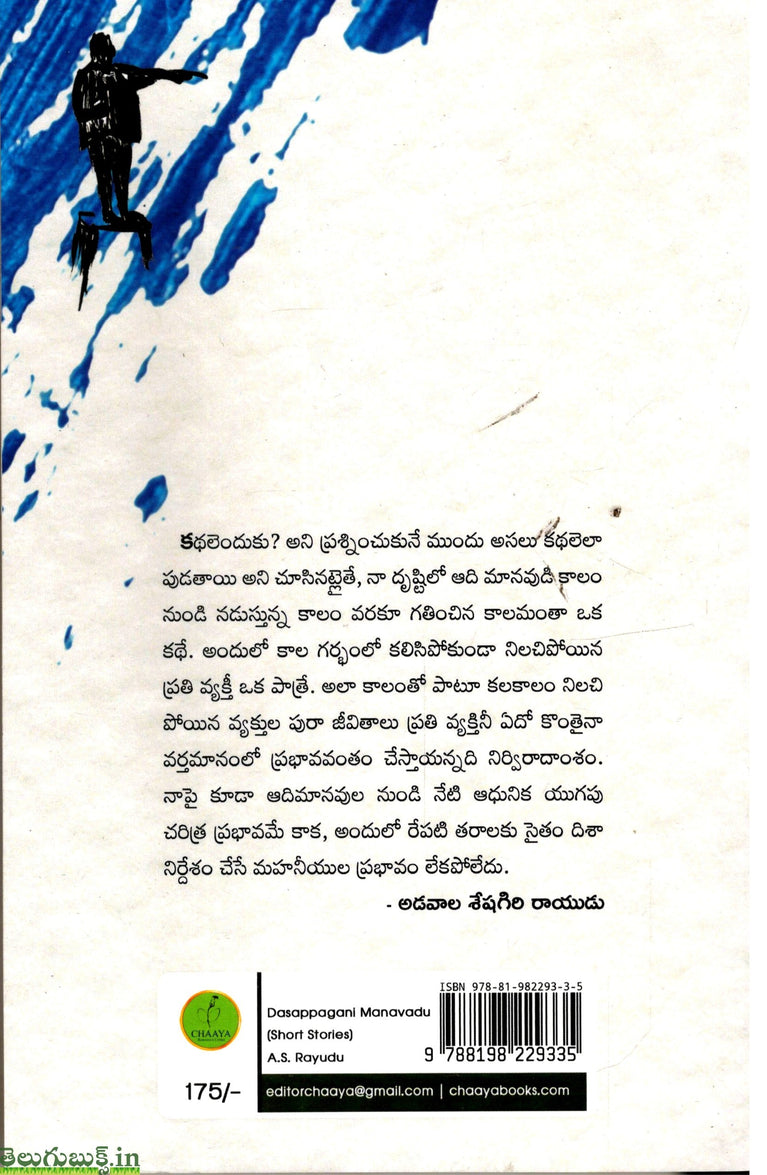 కథలెందుకు? అని ప్రశ్నించుకునే ముందు అసలు కథలెలా
పుడతాయి అని చూసినట్లైతే, నా దృష్టిలో ఆది మానవుడి కాలం
నుండి నడుస్తున్న కాలం వరకూ గతించిన కాలమంతా ఒక
కథే. అందులో కాల గర్భంలో కలిసిపోకుండా నిలచిపోయిన
ప్రతి వ్యక్తీ ఒక పాత్రే. అలా కాలంతో పాటూ కలకాలం నిలచి
పోయిన వ్యక్తుల పురా జీవితాలు ప్రతి వ్యక్తినీ ఏదో కొంతైనా
వర్తమానంలో ప్రభావవంతం చేస్తాయన్నది నిర్విరాదాంశం.
నాపై కూడా ఆదిమానవుల నుండి నేటి ఆధునిక యుగపు
చరిత్ర ప్రభావమే కాక, అందులో రేపటి తరాలకు సైతం దిశా
నిర్దేశం చేసే మహనీయుల ప్రభావం లేకపోలేదు.
- అడవాల శేషగిరి రాయుడు
CHAAYA
175/-
Dasappagani Manavadu
(Short Stories)
A.S. Rayudu
ISBN 978-81-982293-3-5
9 788198 229335
editorchaaya@gmail.com | chaayabooks.com
తెలుగుబుక్స్.in